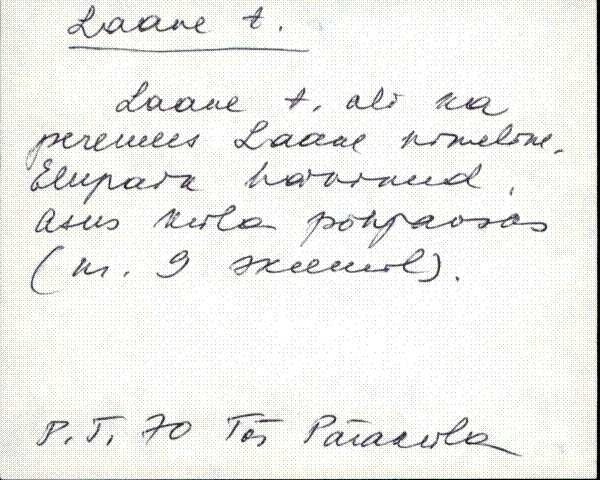 Laane t.
Laane t. oli ka
peremees Laane nimeline.
Elupaik hävinud,
Asus küla põhjaosas
(nr. 9 skeemil).
P. T. 70 Tõs Päraküla